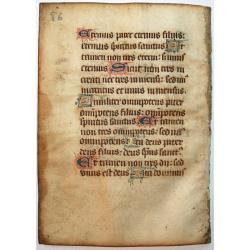 86
Eternus pater eternus filius:
eternus spiritus sanctus Et
tamen non tres eterni: s
eternus Sicut non tres in
creati nec tres inmensi: s
increatus et unus inmensus.
Similiter omnipotens pater
omnipotens filius: omnipotens
spiritus sanctus
Et tamen
non tres omnipotentes: sed
omnipotens Ita deus pater
deus filius: deus spiritus sanc
Et tamen non tres dii: sed
unus est deus Ita dominus